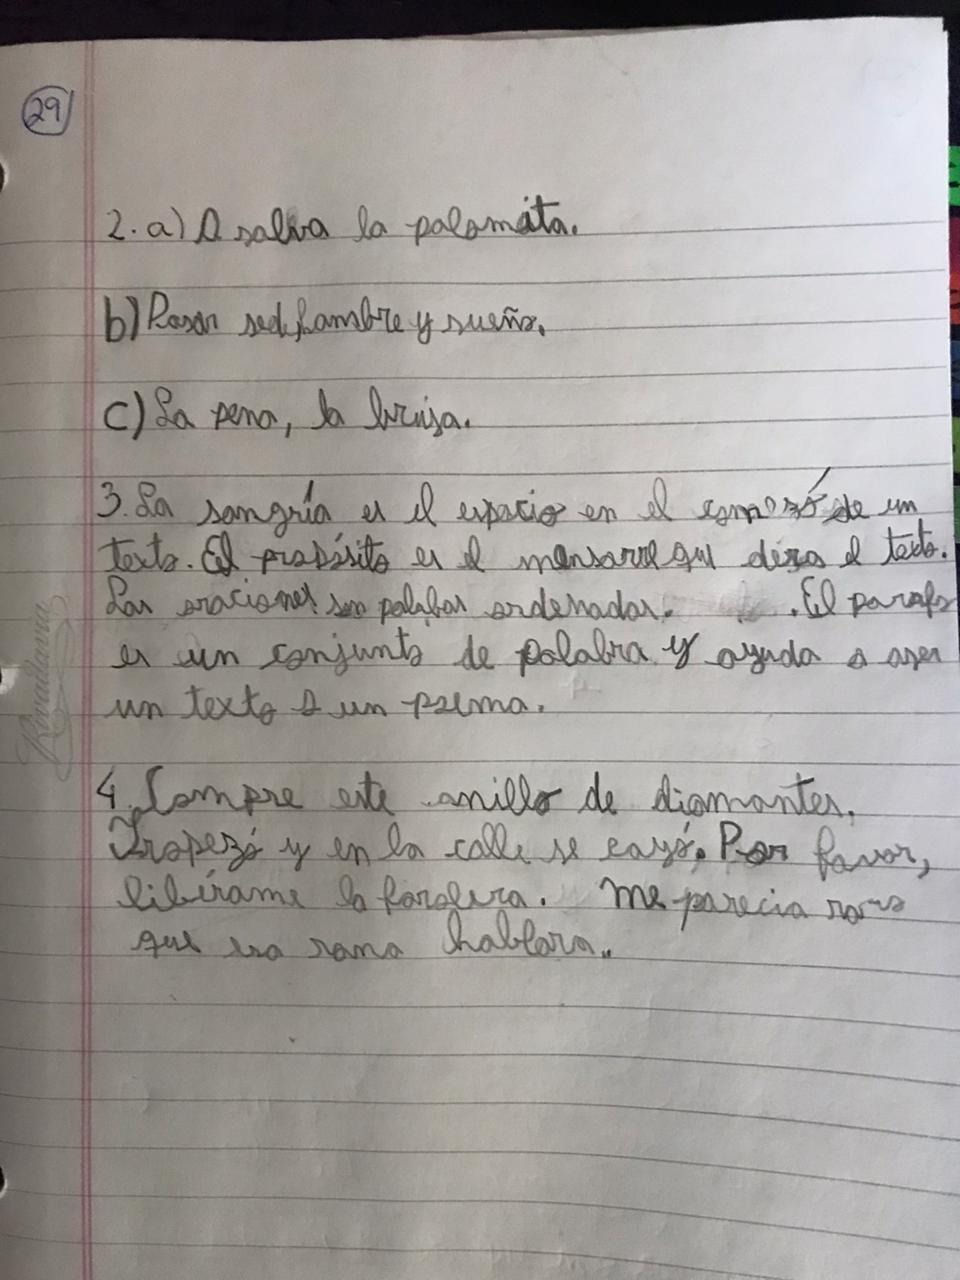 29
2. a) A salva la palomita.
b) Pasar sed, hambre y sueño.
c) La pena, la brisa.
3. La sangría es el espacio en el comezó de un
texto. El propósito es el mensaree que deza el texto.
Las oraciones son palabas ordenadas. .El parafo
es un conjunto de palabra y ayuda a aser
un texto o un poema.
4. Compre este anillo de diamantes.
Tropezó y en la calle se cayó. Por favor,
libérame la farolera. Me parecia raro
que esa rana hablara.
Rivadavia